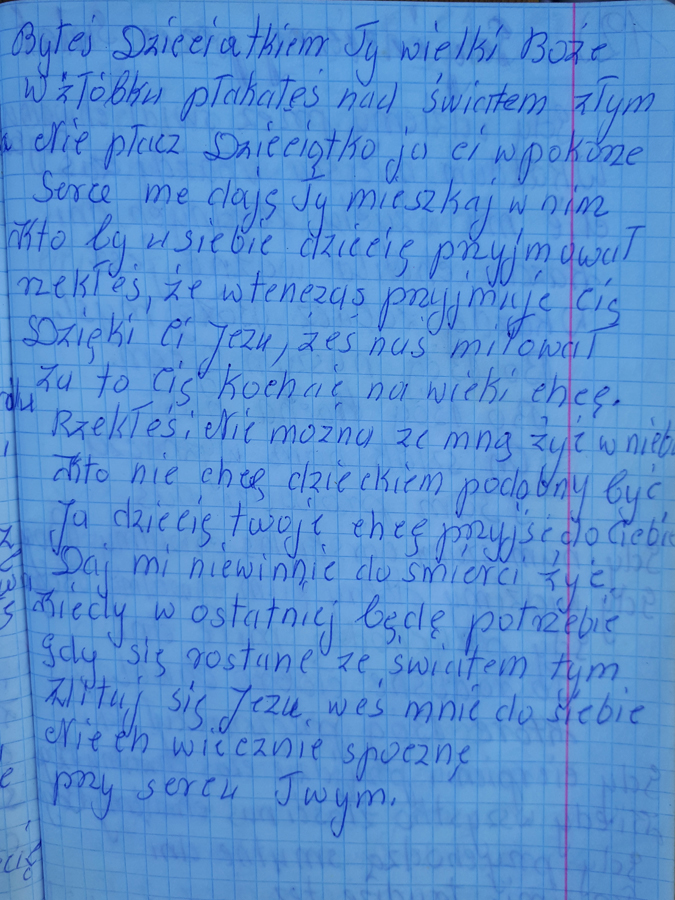 Byłeś Dzieciatkiem Ty wielki Boże
W żłóbku płakałeś nad światem złym
Nie płacz Dzieciątko ja ci w pokorze
Serce me daję Ty mieszkaj w nim
Kto by u siebie dziecię przyjmował
rzekłeś, że wtenczas przyjmuje Cię
Dzięki Ci Jezu, żeś nas miłował
Za to Cię kochać na wieki chcę.
Rzekłeś; Nie można ze mną żyć w niebi
Kto nie chcę dzieckiem podobny być
Ja dziecię twoje chcę przyjść do Ciebie
Daj mi niewinnie do śmierci żyć.
Kiedy w ostatniej będę potrzebie
gdy się rostane ze światem tym
Zlituj się Jezu weś mnie do siebie
Niech wiecznie spocznę
przy sercu Twym.